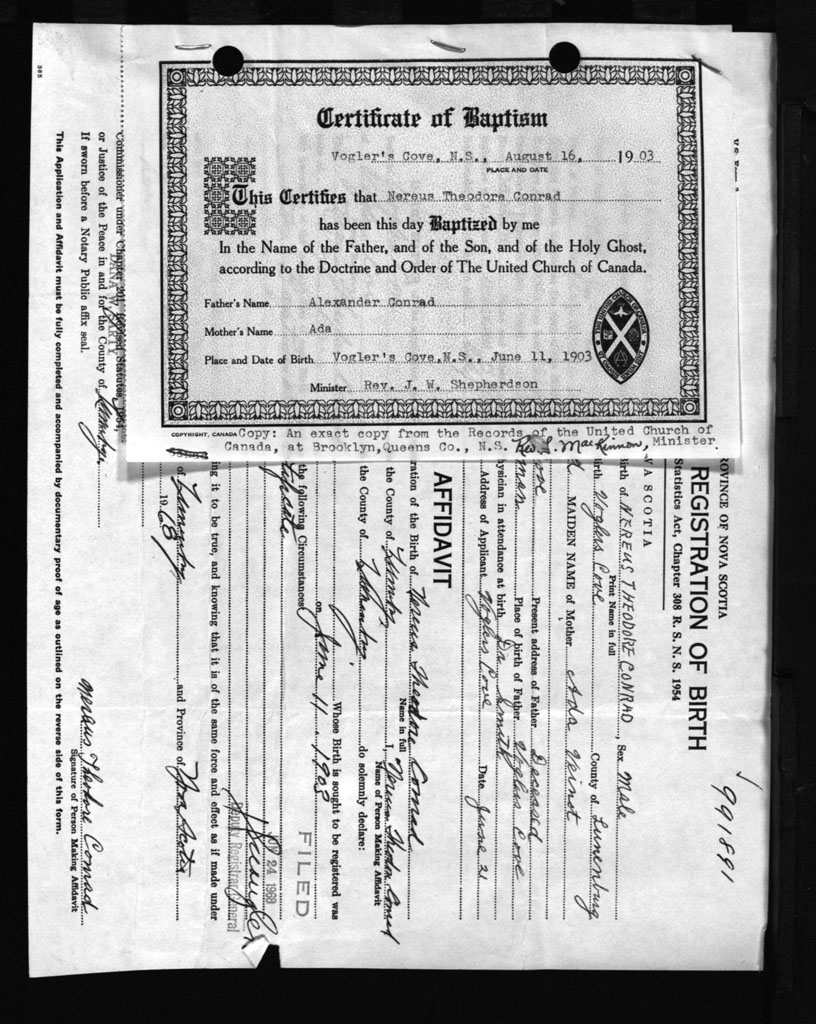 Certificate of Baptism
Vogler's Cove, N.S., August 16, 1903
PLACE AND DATE
This Certifies that Nereus Theodore Conrad
has been this day Baptized by me
In the Name of the Father, and of the Son, and of the Holy Ghost,
according to the Doctrine and Order of The United Church of Canada.
Father's Name Alexander Conrad
Mother's Name Ada
Place and Date of Birth Vogler's Cove, N.S., June 11, 1903
Minister Rev. J. W. Shepherdson
COPYRIGHT, CANADA Copy: An exact copy from the Records of the United Church of
Canada, at Brooklyn, Queens Co., N.S. Rev. L. MacKinnon, Minister
991891
ROVINCE OF NOVA SCOTIA
REGISTRATION OF BIRTH
Statistics Act, Chapter 308 R. S. N. S. 1954
VA SCOTIA
Birth of NEREUS THEODORE CONRAD, Sex Male
Print Name in full
Birth Voglers Cove County of Lunenburg
MAIDEN NAME of Mother Ada Veinot
Present address of Father Deceased
Place of birth of Father Voglers Cove
ysician in attendance at birth Dr Smith
Address of Applicant Voglers Cove Date June 21
AFFIDAVIT
ration of the Birth of Nereus Theodore Conrad
Name in full
the County of I, Nereus Theodore Conrad
Name of Person Making Affidavit
the County of do solemnly declare:
Whose Birth is sought to be registered was
on June 11, 1903
the following Circumstances
FILED
24 1968
Deputy Registrar General
ng it to be true, and knowing that it is of the same force and effect as if made under
of and Province of Nova Scotia
1968
Nereus Theodore Conrad
Signature of Person Making Affidavit
Commissioner under Chapter 201, Revised Statutes, 1954,
DANA W.
or Justice of the Peace in and for the County of
If sworn before a Notary Public affix seal.
This Application and Affidavit must be fully completed and accompanied by documentary proof of age as outlined on the reverse side of this form.